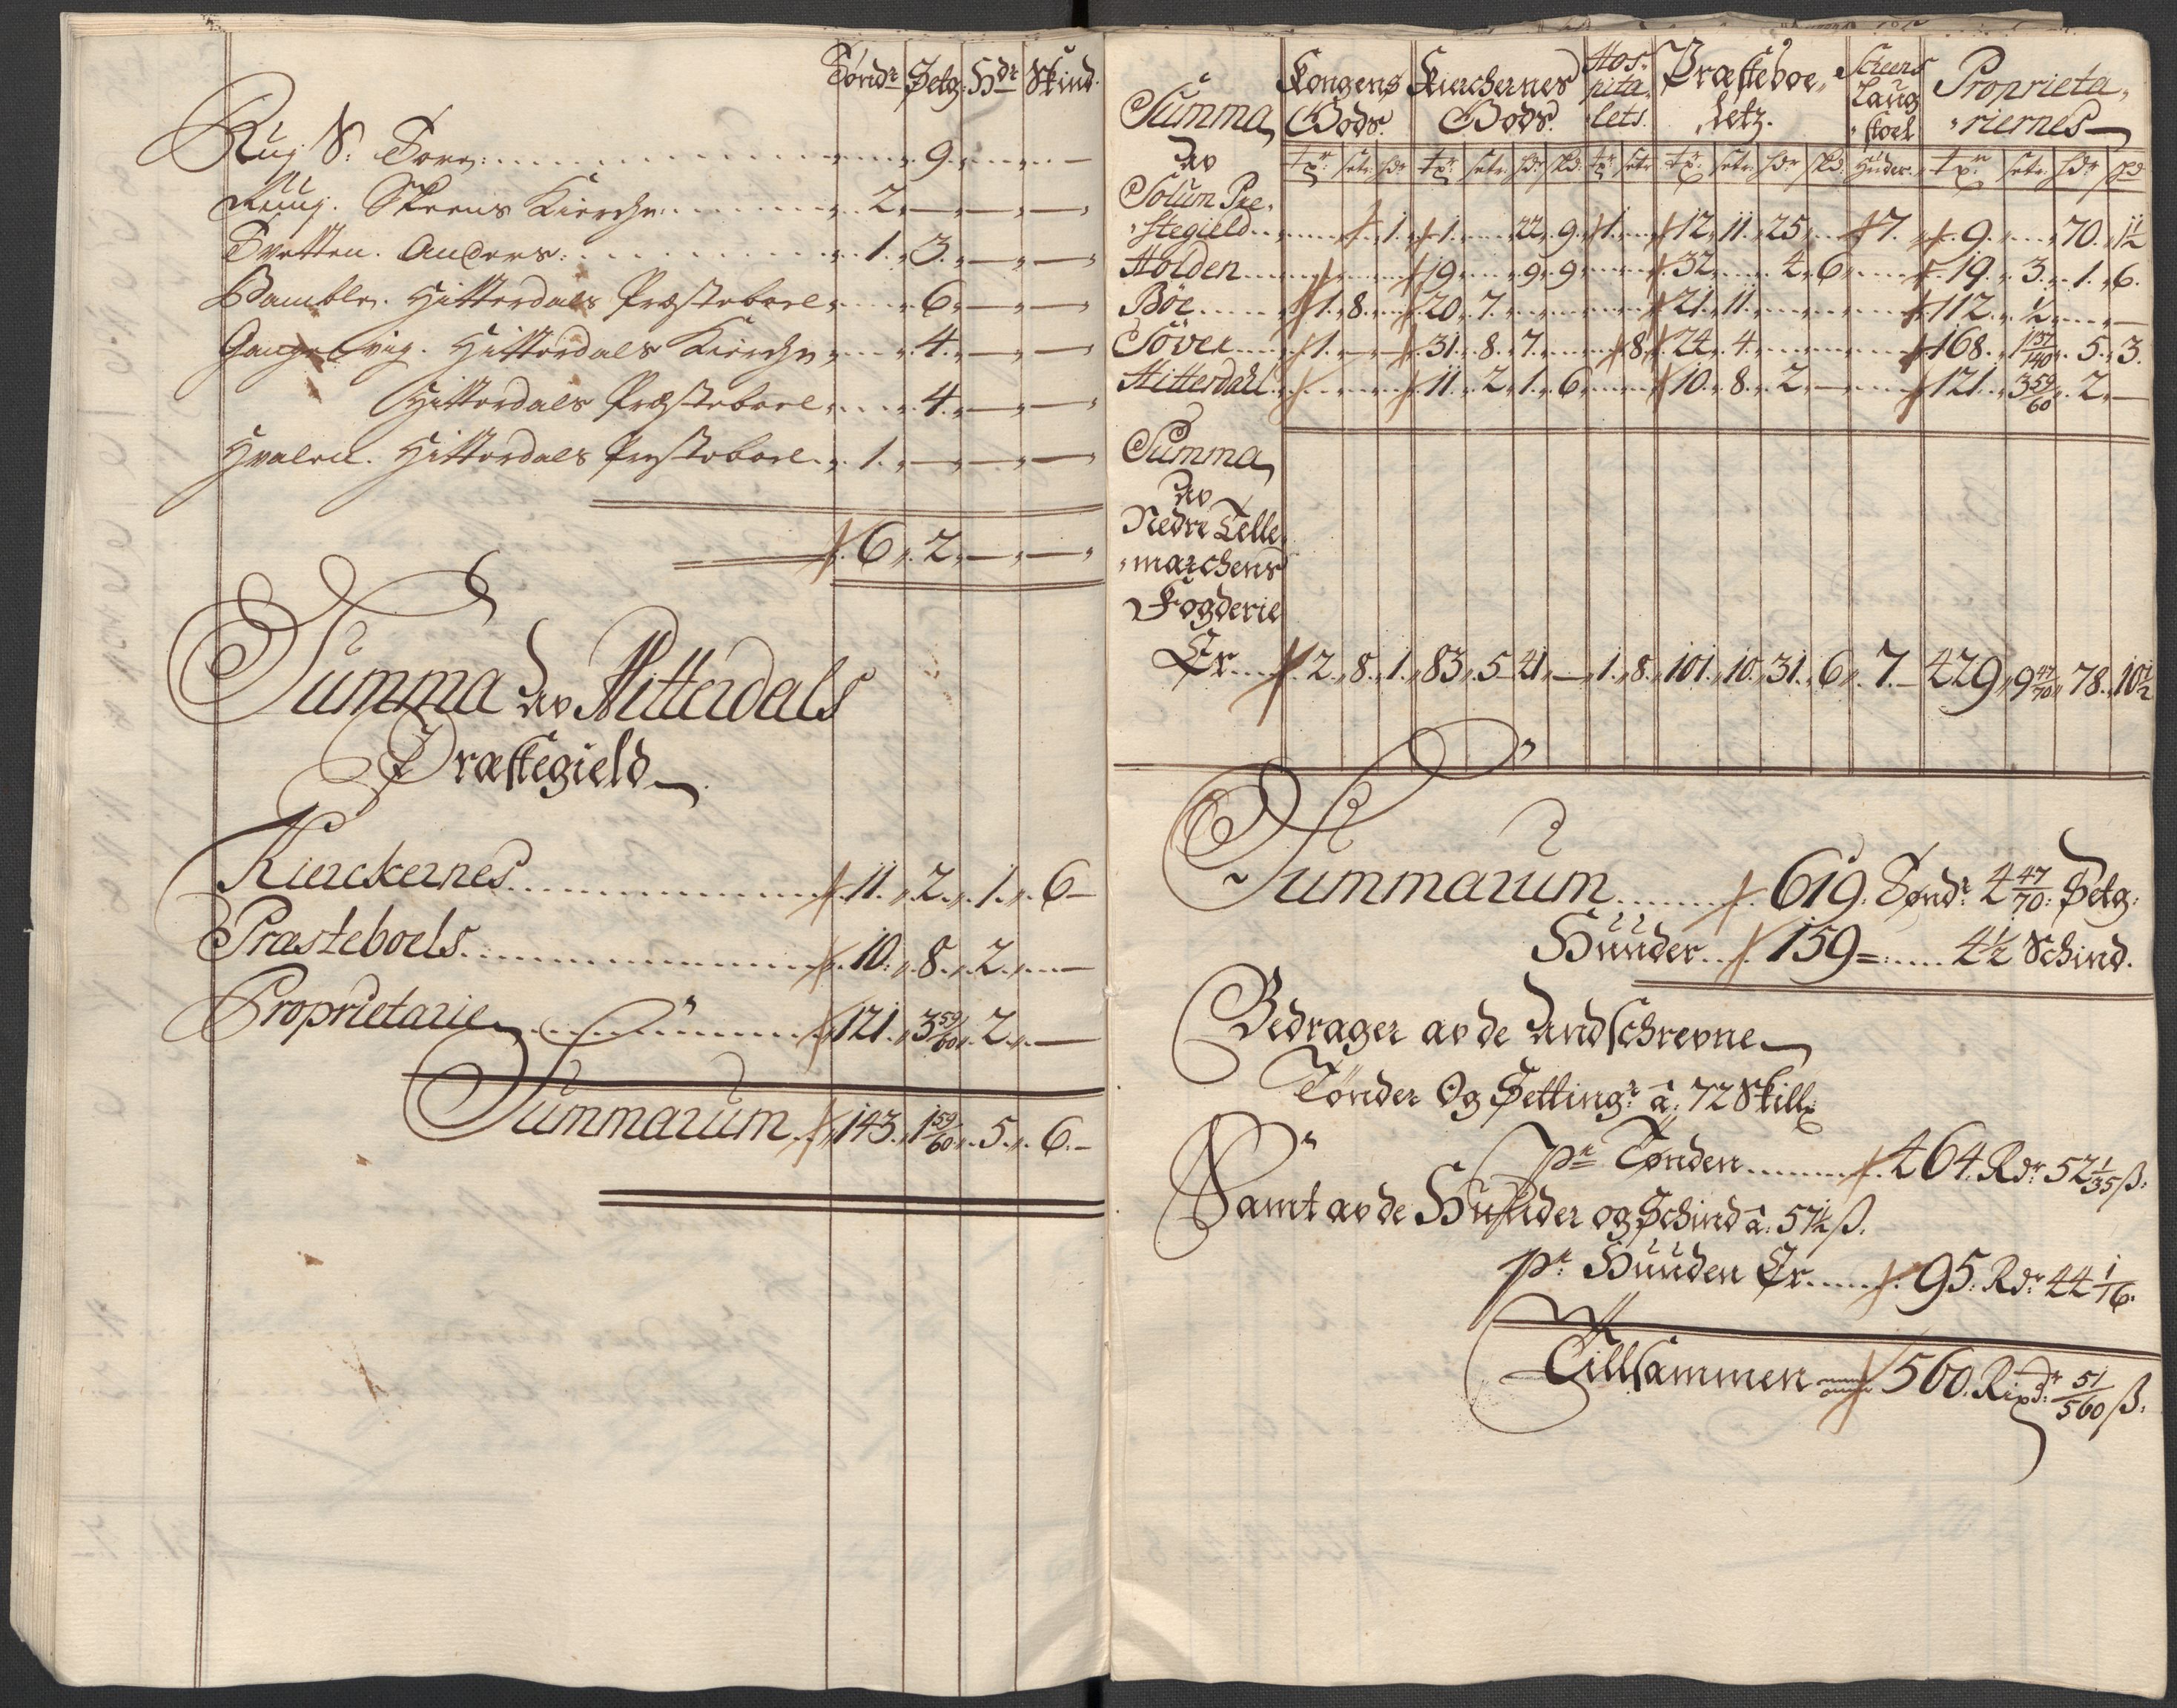 Tønd.r Setg: Hdr Skind.
Ruj S: Tore: 9. —
Ruuj. Skeens Kierche: 2. — — —
Tvetten. Anders: 1. 3. — —
Bamble. Hitterdals Præstebool 6. — —
Hitterdals Kierche 4. — —
Hitterdals Præstebool 4. — —
Hvalen. Hitterdals Præstebool 1. — — —
6. 2. — —
Summa av Hitterdals
Præstegield
Kierckernes 11. 2. 1. 6
Præsteboels 10. 8. 2. —
Proprietarie 121. 3 59/60. 2. —
Summarum 143. 1 59/60. 5. 6.
Summa av Kongens Gods. Kierchernes Gods. Hospitalets. Præsteboeletz. Scheens Laugstoel Proprietariernes
tr: setr: hdr tr: setr: hdr skd: tr: setr tr: setr: hdr skd: Huder. tr: setr: hdr skd
Solum Præstegield 1. 1. 22. 9. 1. 12. 11. 25. 7. 9. 70. 1 1/2
Holden 19. 9. 9. 32. 4. 6. 19. 3. 1. 6.
Böe 1. 8. 20. 7. 21. 11. 112. 1/2. —
Söver 1. — 31. 8. 7. 8. 24. 4. 168. 1 137/140. 5. 3.
Hitterdahl 11. 2. 1. 6. 10. 8. 2. — 121. 3 59/60. 2. —
Summa
av
Nedre Telle
marchens
Fogderie
Er 2. 8. 1. 83. 5. 41. — 1. 8. 101. 10. 31. 6. 7. 429. 9 47/70. 78. 10 1/2
Summarum 619. Tønd.r 4 47/70: Setg:
Huuder 159 = 4 1/2 Schind.
Bedrager av de Andschrevne
Tønder Og Setting.r â: 72 Skill:
pr Tønden 464. Rdr 52 1/35 ß.
Samt av de Huuder og Schind â: 57 1/2 ß.
pr. Huuden Er 95. Rdr 44 1/16.
Tillsammen 560. Rixdr: 51/560 ß.